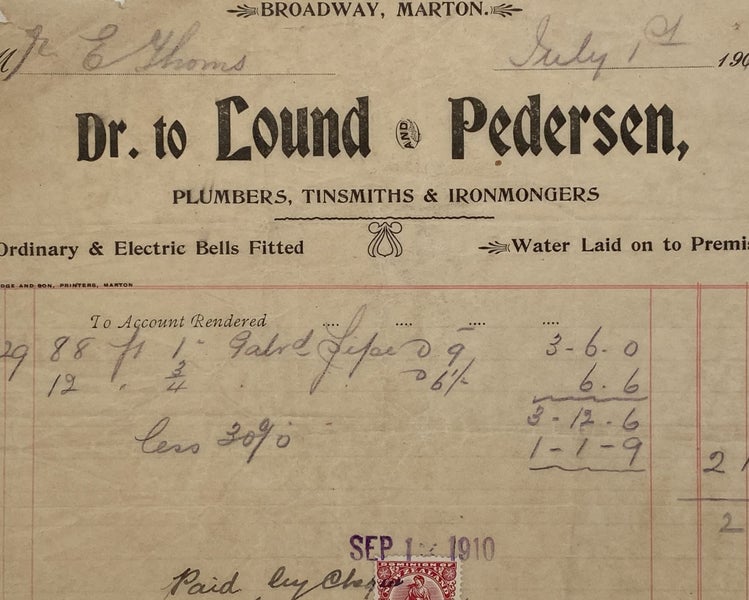 BROADWAY, MARTON.
Mr E Thoms July 1st 190
Dr. to Lound AND Pedersen,
PLUMBERS, TINSMITHS & IRONMONGERS
Ordinary & Electric Bells Fitted Water Laid on to Premi
DGE AND SON, PRINTERS, MARTON
To Account Rendered .... .... .... ....
29 88 ft 1" Galvd Pipe @ 9 3-6-0
12 " 3/4 @ 6½ 6.6
3-12-6
less 30% 1-1-9
2 1
2
SEP 1 1910
DOMINION OF
ZEALAND
Paid by Cheque